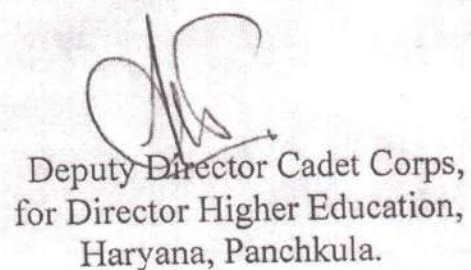 Deputy Director Cadet Corps,
for Director Higher Education,
Haryana, Panchkula.